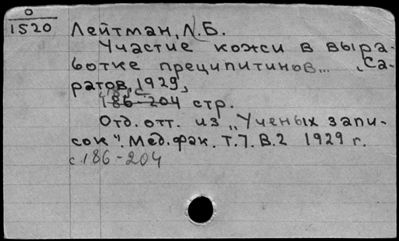 0
1520
Лейтман, Л.Б.
Участие кожи в выра-
ботке преципитинов... Са-
ратов, 1929,
186-204 стр.
Отд. отт. из „Ученых запи-
сок". Мед. фак. Т.7. В.2 1929 г.
с 186-204